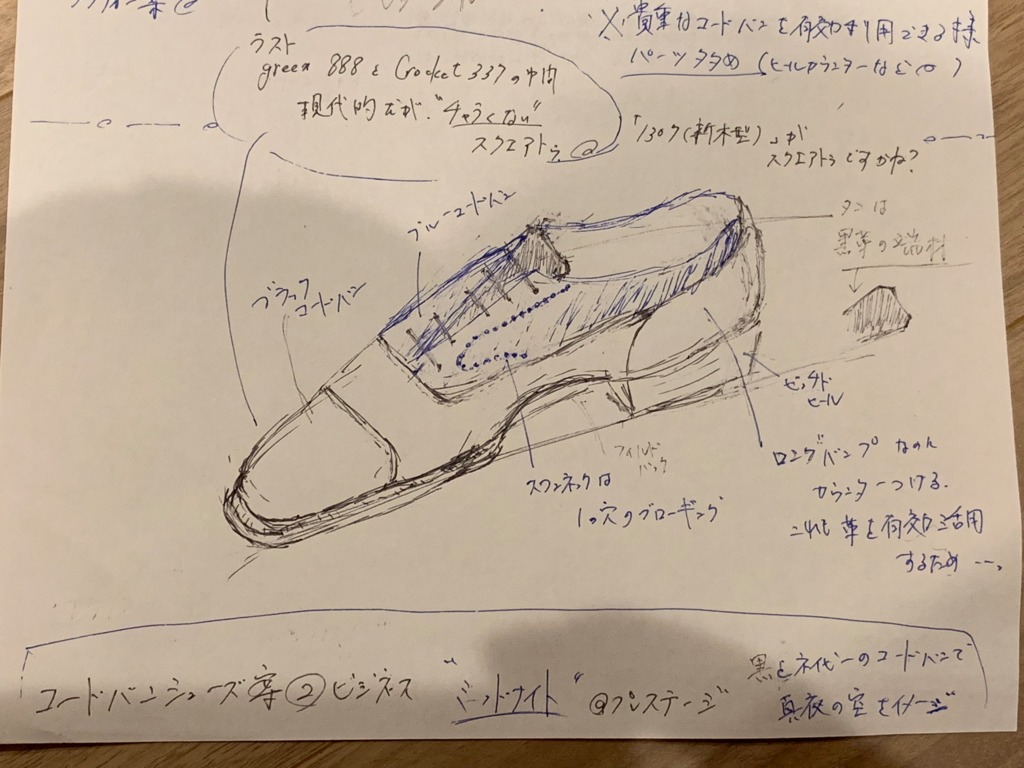 ※ 貴重なコードバンを有効利用できる様
パーツ多め (ヒールカウンターなど)
ラスト
green 888 と Crocket 337の中間
現代的だが、"チャラくない"
スクエアトウ
「130ク(新木型)」が
スクエアトゥですかね?
ブルーコードバン
タンは
黒革の端材
ブラック
コードバン
ピッチド
ヒール
フィドル
バック
スワンネックは
1つ穴のブローギング
ロングバンプなのに
カウンターつける。
これも革を有効活用
するため…。
コードバンシューズ案②ビジネス "ミッドナイト" @プレステージ
黒とネイビーのコードバンで
真夜の空をイメージ